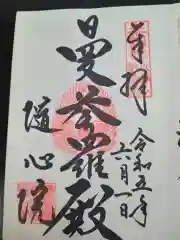 奉拝
令和五年
六月一日
曼荼羅殿
随心院